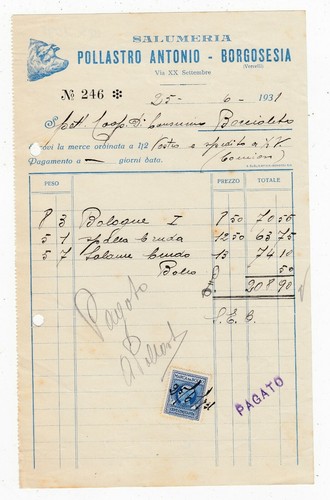 SALUMERIA
POLLASTRO ANTONIO - BORGOSESIA
(Vercelli)
Via XX Settembre
№ 246 ✻
25 - 6 - 1931
Spett. Coop. Di Consumo Boccioleto
la merce ordinata a 1/2 Vostro e spedito a 1/2
Pagamento a — giorni data.
PESO PREZZO TOTALE
8 3 Bologne I 8 50 70 55
5 1 Cruda 12 50 63 75
5 7 Salame Crudo 13 74 10
Bollo 50
208 90
S. E. &.
Pagato
Pollastro
PAGATO